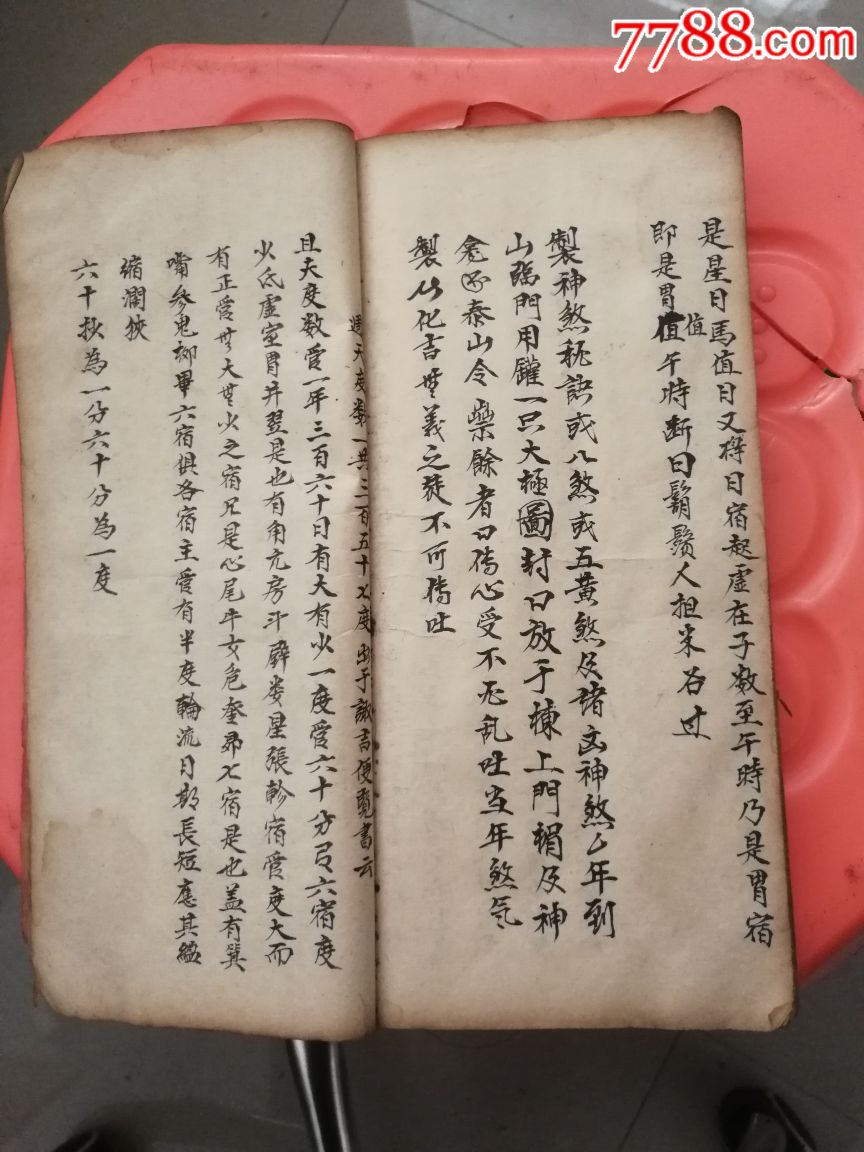 7788.com
是星日馬值日又將日宿起虛在子数至午時乃是胃宿
即是胃值值午時断曰鬍鬚人担米谷过
製神煞秘訣或八煞或五黄煞及诸凶神煞占年到
山臨門用鑵一只大極圖封口放于楝上門楣及神
龛还泰山令 馀者口傳心受不可乱吐当年煞氣
製以化吉無義之徒不可傳吐
週天度数一共三百五十七度出于諏吉便覧書云
且天度数管一年三百六十日有大有少一度管六十分另六宿度
少氐虛室胃井翌是也有角亢房斗壁娄星張軫宿管度大而
有正管無大無少之宿只是心尾牛女危奎昴七宿是也盖有箕
嘴参鬼柳畢六宿俱各宿主管有半度輪流日期長短應其
缩濶狹
六十秋為一分六十分為一度